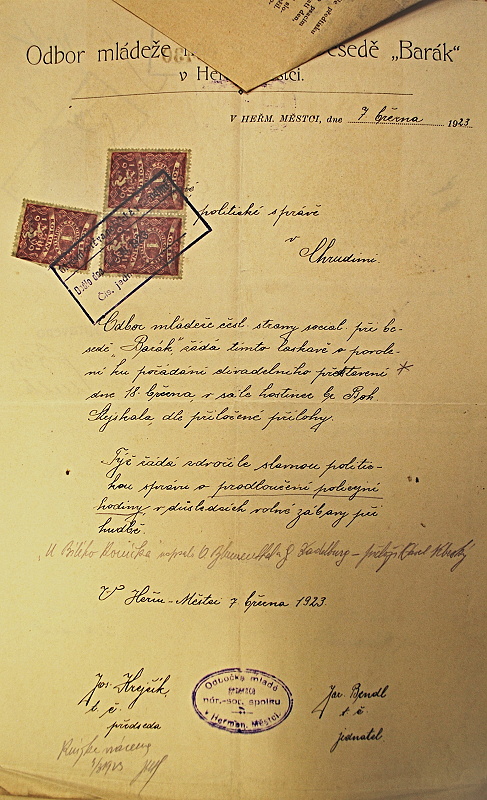 Odbor mládeže esedě „Barák“
v Heřm. Městci.
V HEŘM. MĚSTCI, dne 7 března 1923.
politické správě
v
Chrudimi.
Odbor mládeže čsl. strany social. při be-
sedě „Barák“, žádá tímto laskavě o povole-
ní ku pořádání divadelního představení *
dne 18. března, v sále hostince Boh.
Stejskala, dle přiložené přílohy.
Týž žádá zdvořile slavnou politic-
kou správu o prodloužení policejní
hodiny, v důsledcích volné zábavy při
hudbě.
„U Bílého Koníčka“ napsali O. Blumenthal a G. Kadelburg – přel.
V Heřm-Městci 7 března 1923.
Jos. Krejčík,
t. č.
předseda
Odbočka mladé
generace
nár.-soc. spolku
v Heřman. Městci.
Jar. Bendl
t. č.
jednatel.